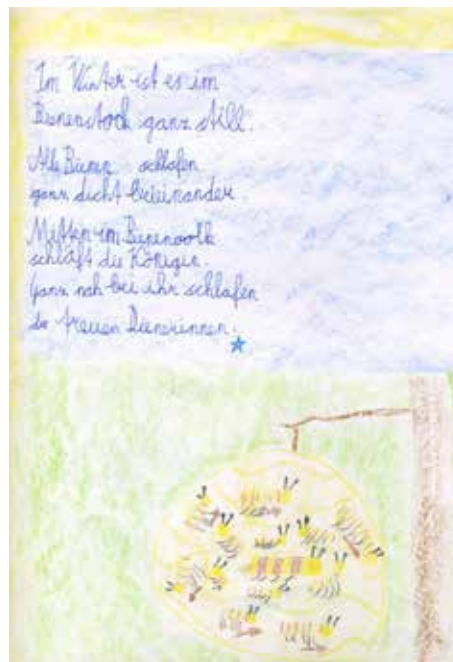 Im Winter ist es im
Bienenstock ganz still.
Alle Bienen schlafen
ganz dicht beieinander.
Mitten im Bienenvolk
schläft die Königin.
Ganz nah bei ihr schlafen
die treuen Dienerinnen.